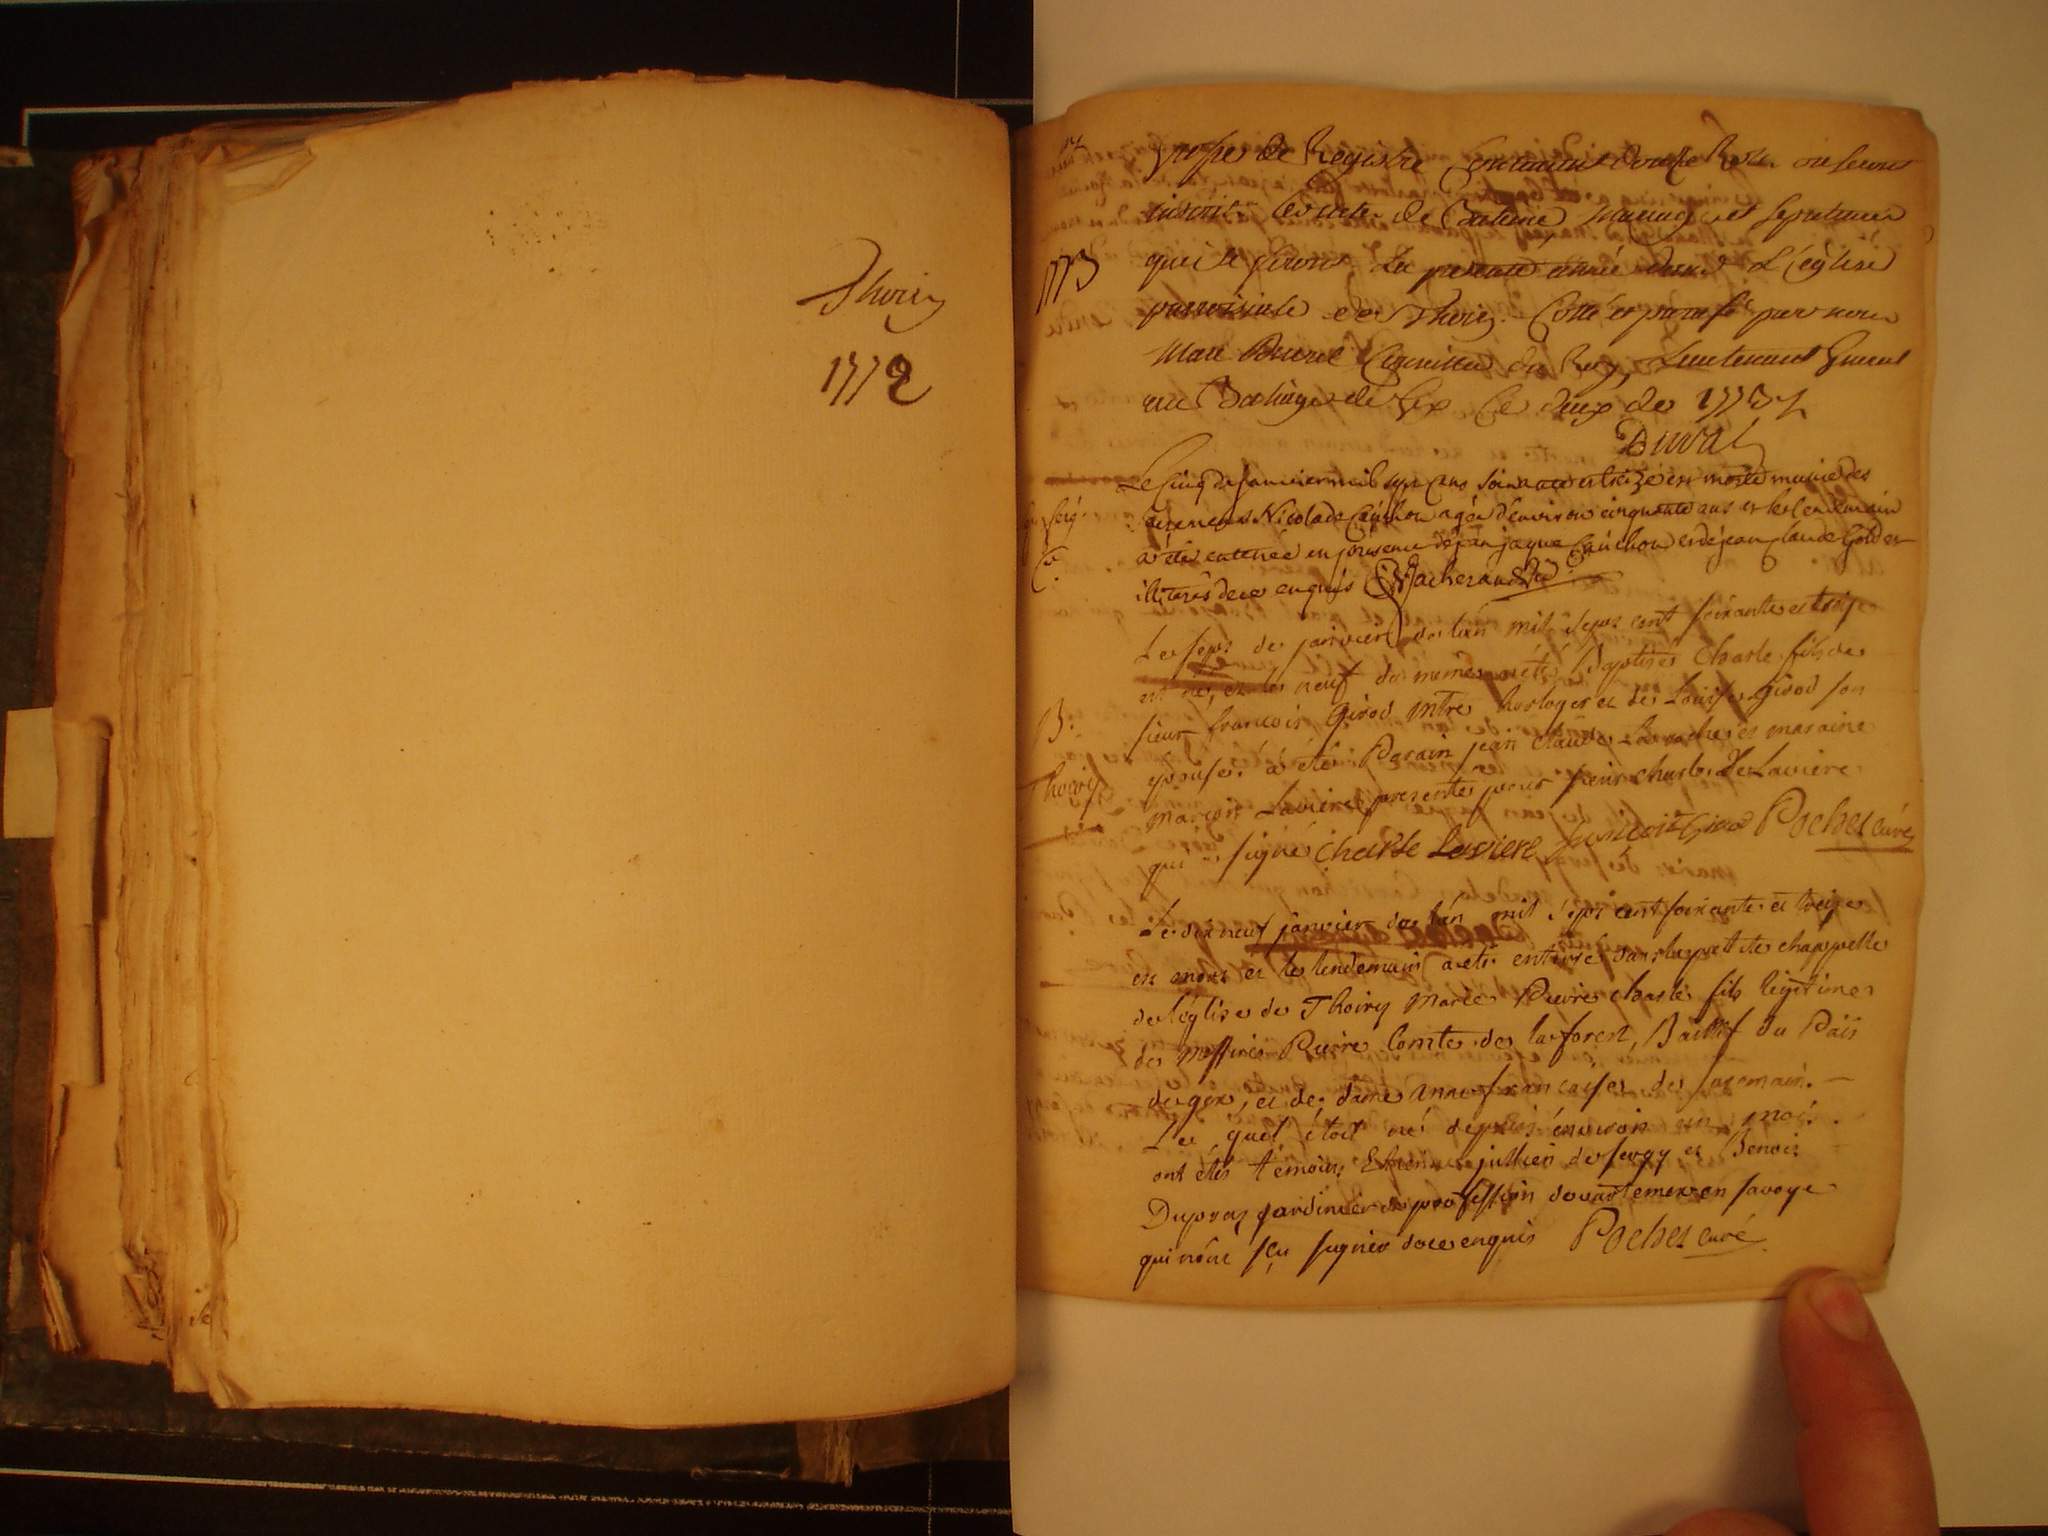 Thoiry
1772
grosse de Registre Contenant douze Roles ou seront
inscrit les actes de Bateme, Mariage et Sepulture
1773
qui se feront La presente année dans L'église
parroissiale de Thoiry. Cotté et paraffé par nous
Marc Duval Conseiller du Roy, Lieutenant General
au Bailiage de Gex Ce deux de 1773
Duval
Le cinq de janvier mil sept cens soixante et treize est morte marie des
Nicolade Cauchon agée d'environ cinquante ans et le lendemain
a été enterrée en présence de jean jaque Cauchon et de jean claude
illiterés de ce enquis
Le sept de janvier de l'an mil sept cent soixante et treize
est né, et le neuf du même a été Baptisé Charle fils de
B.
sieur francois Girod mtre horloger et de Louise Girod son
Thoiry
épouse. a été Parain jean claude et maraine
Lavière presente pour sieur charle De Lavière
qui signé Charle Laviere francoit Girod Pochet curé
Le dix neuf janvier de l'an mil sept cent soixante et treize
est mort et le lendemain a été enterré dans la petite chappelle
de l'église de Thoiry Marie Pierre charle fils légitime
de Messire Pierre Comte de la forest, Baillif du Païs
de gex, et de dame anne francaise de
Le quel étoit né depuis environ un moi.
ont étés témoins Etienne jullien de sergy et Benoit
Dupraz jardinier de profession en savoye
qui n'ont sçu signer de ce enquis Pochet curé